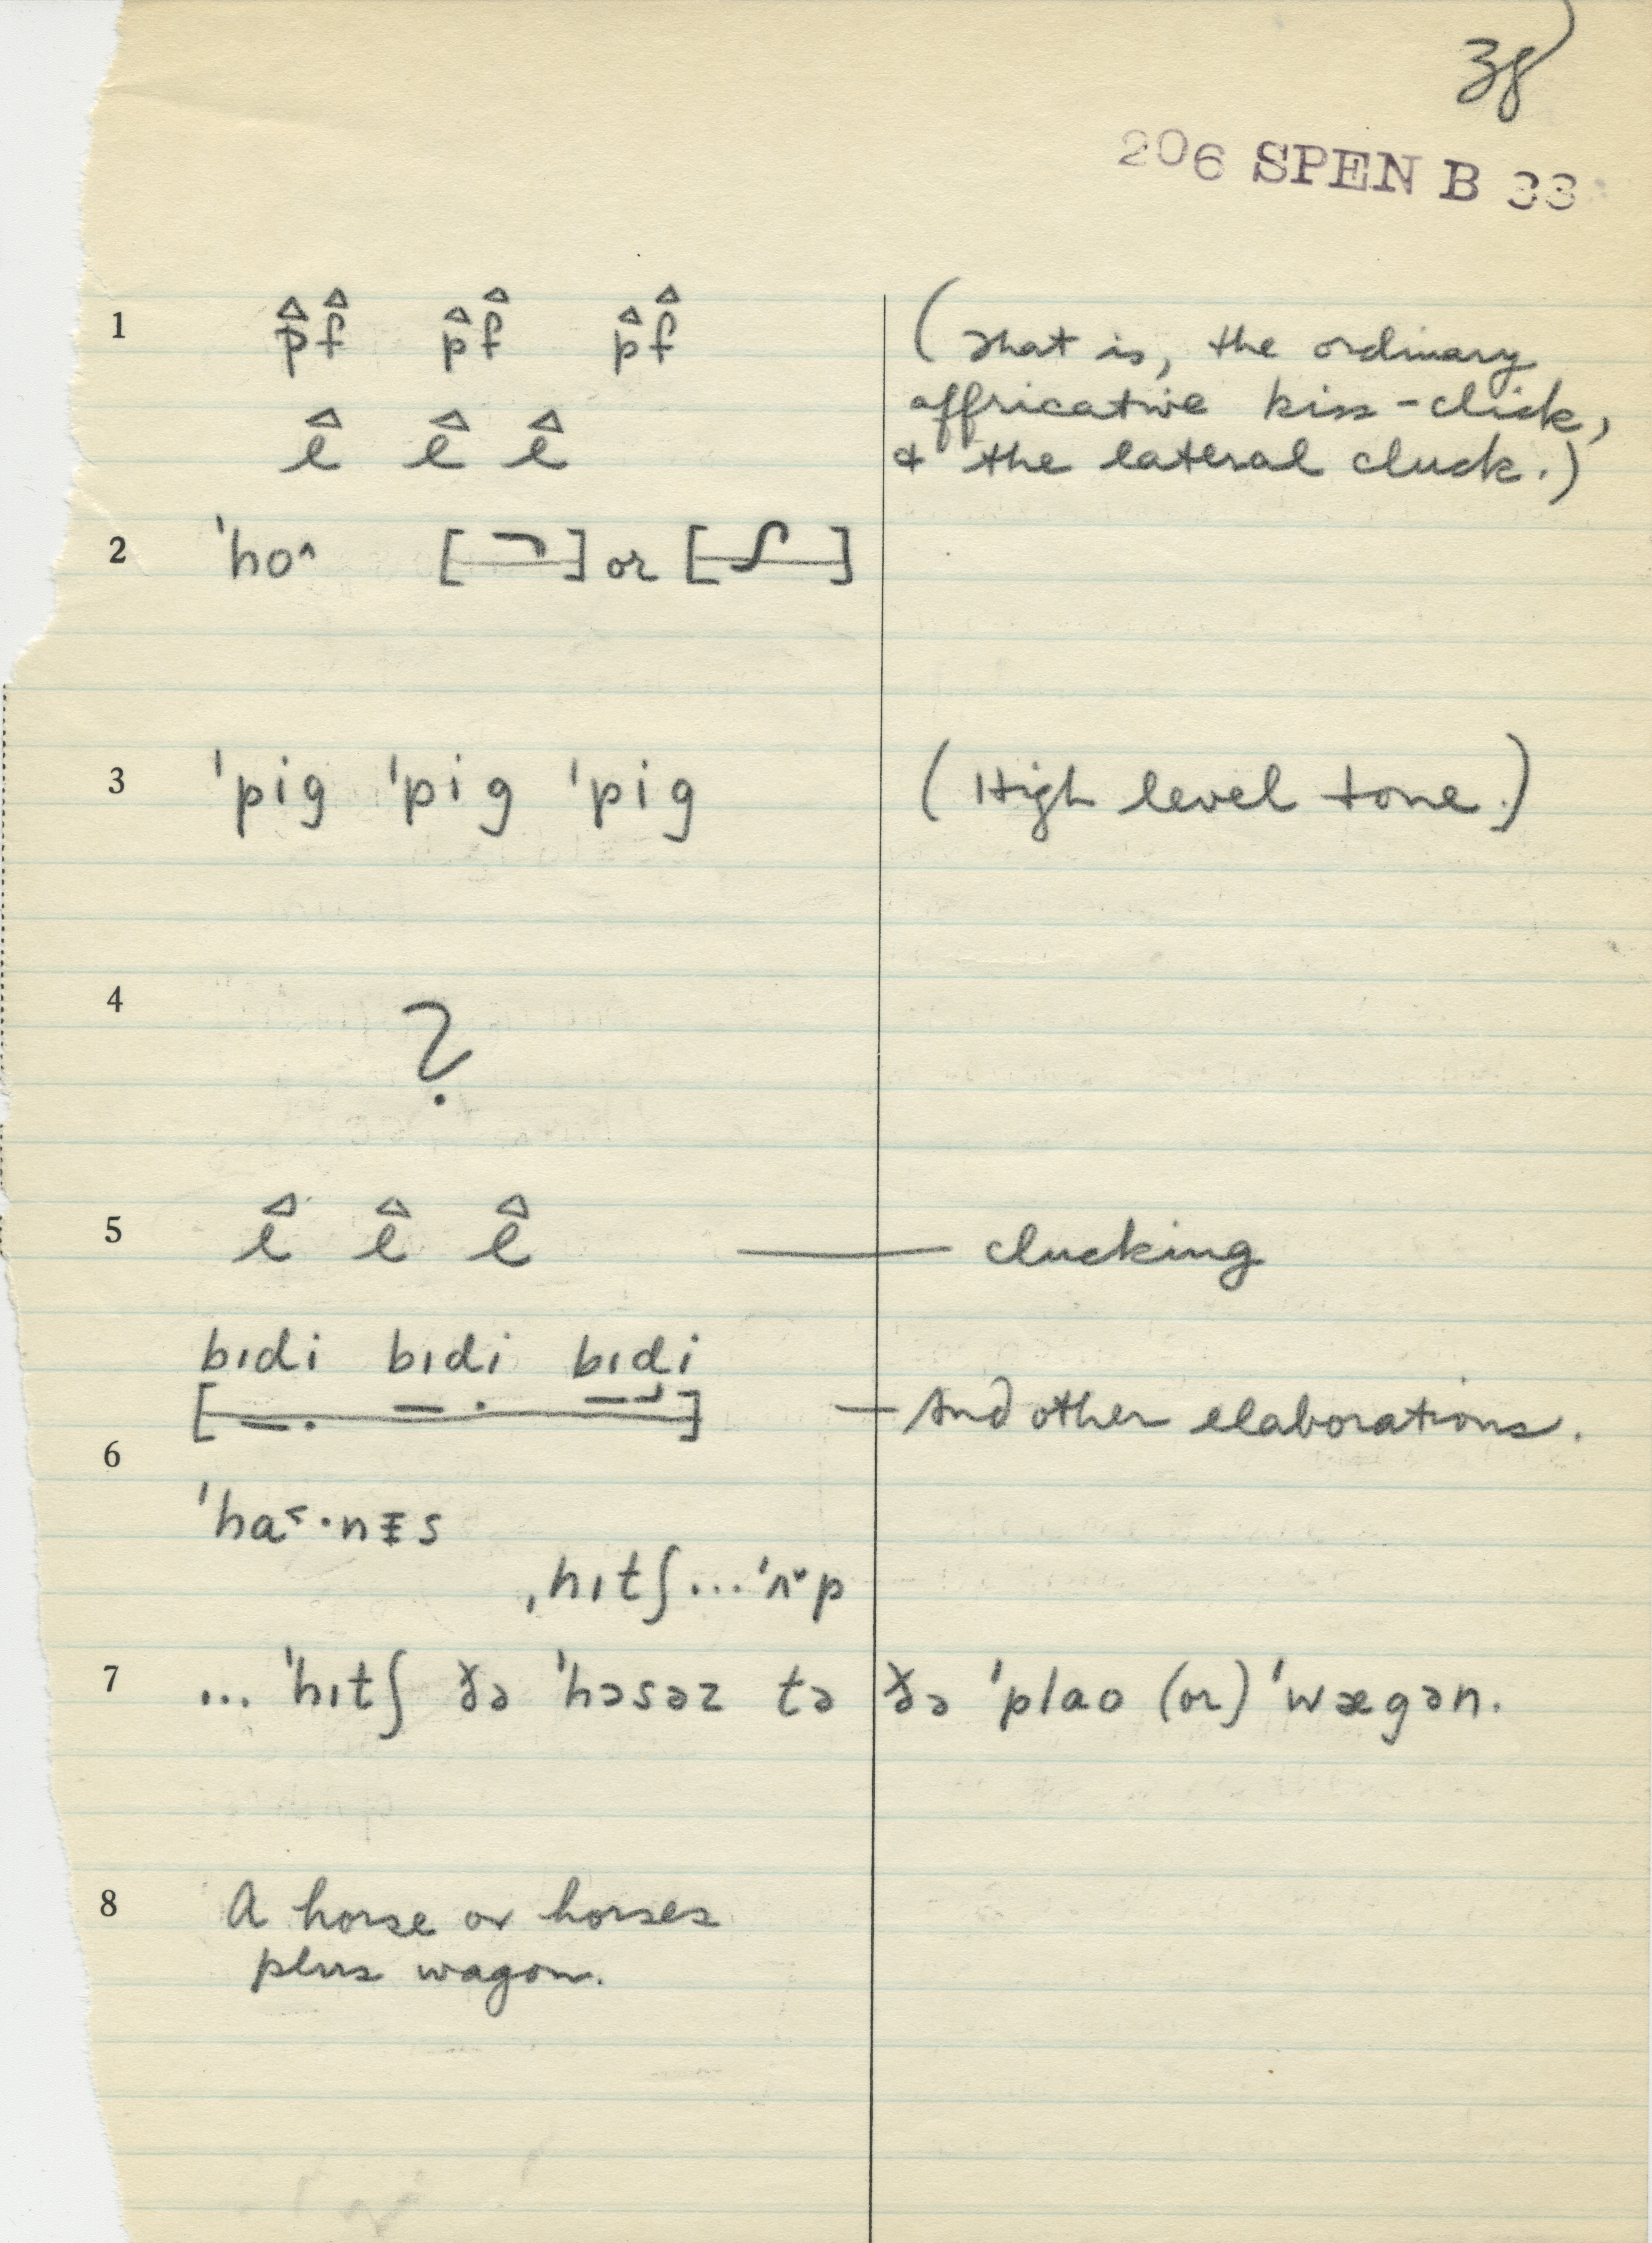 38
206 SPEN B 33
1 p̂f̂ p̂f̂ p̂f̂ (That is, the ordinary
affricative kiss-click,
l̂ l̂ l̂ & the lateral cluck.)
2 ˈho^ [ ] or [ ]
3 ˈpig ˈpig ˈpig (High level tone.)
4 ?
5 l̂ l̂ l̂ — clucking
bɪdi bɪdi bɪdi
[ ] — And other elaborations.
6
ˈha˂·nɪs
ˌhɪtʃ...ˈʌ˅p
7 ... ˈhɪtʃ ðə ˈhɔsəz tə ðə ˈplao (or) ˈwægən.
8 A horse or horses
plus wagon.